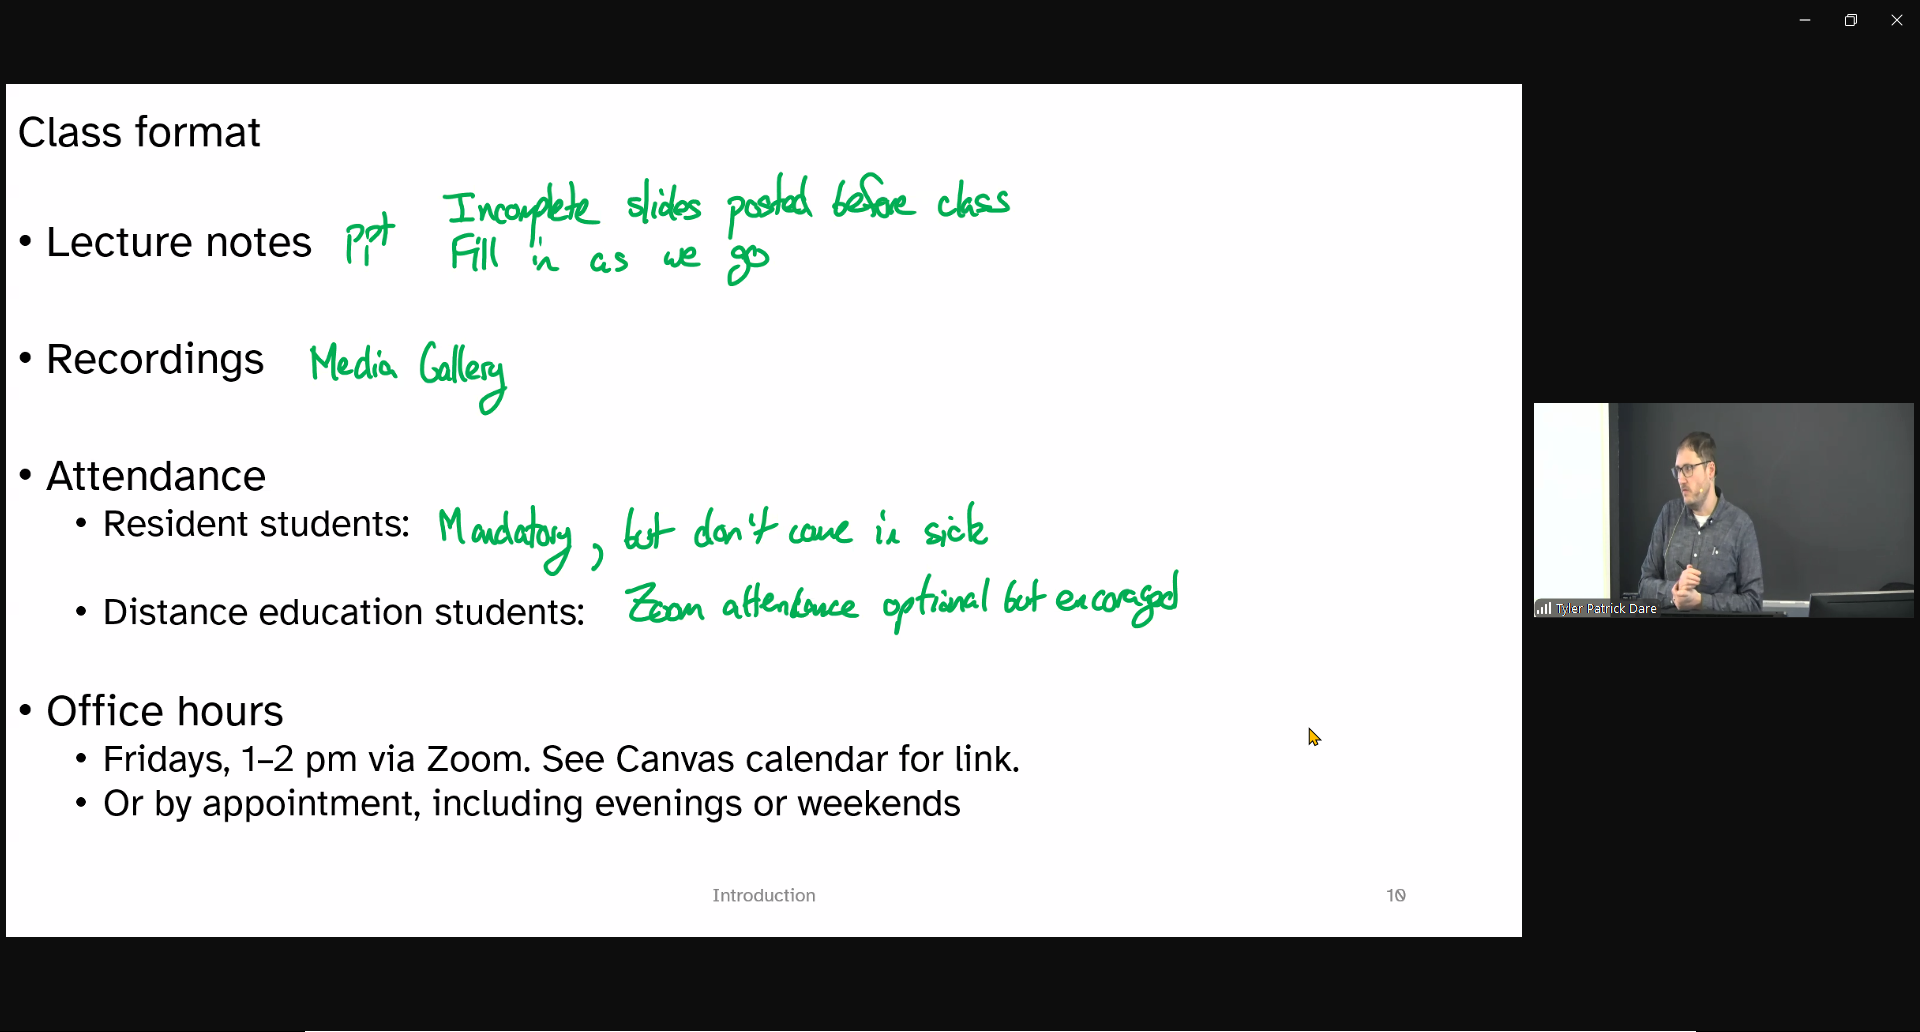 Class format
Incomplete slides posted before class
• Lecture notes ppt
Fill in as we go
• Recordings Media Gallery
• Attendance
• Resident students: Mandatory, but don't come in sick
• Distance education students: Zoom attendance optional but encoraged
• Office hours
• Fridays, 1–2 pm via Zoom. See Canvas calendar for link.
• Or by appointment, including evenings or weekends
Introduction 10
Tyler Patrick Dare